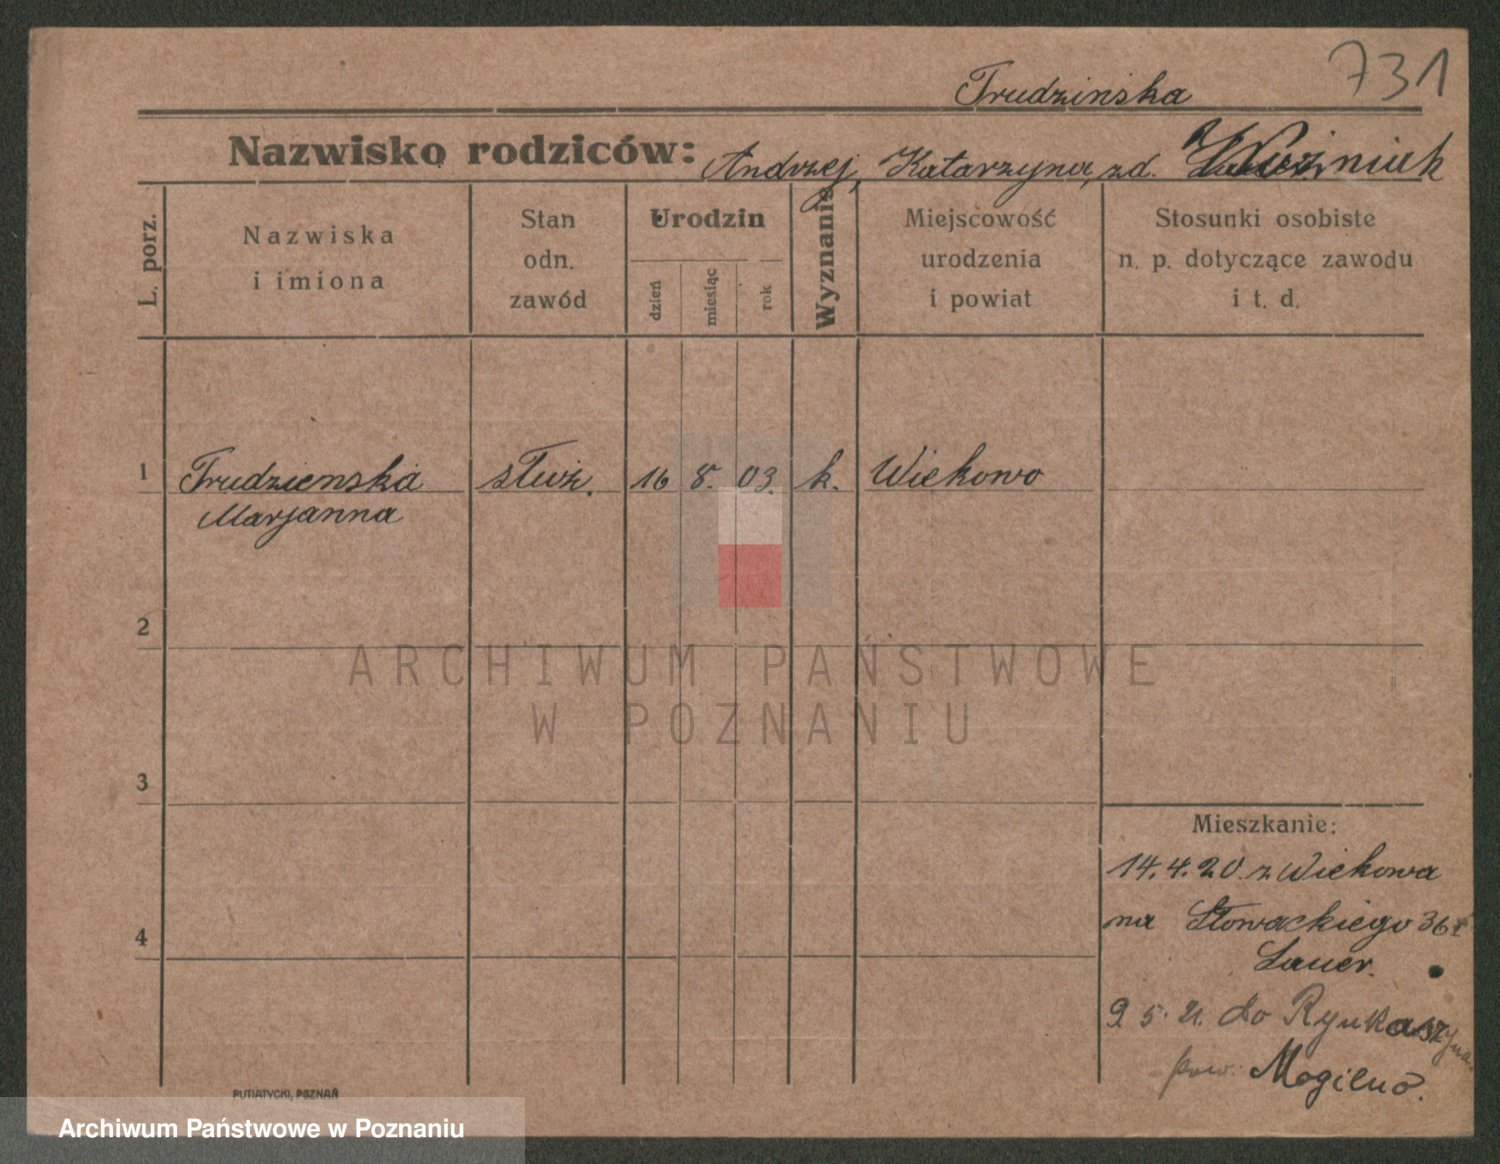 731
Trudzińska
Nazwisko rodziców: Andrzej, Katarzyna, zd. Woźniak
L. porz.
Nazwiska
i imiona
Stan
odn.
zawód
Urodzin
dzień
miesiąc
rok
Wyznanie
Miejscowość
urodzenia
i powiat
Stosunki osobiste
n. p. dotyczące zawodu
i t. d.
1 Trudzienska służ. 16 8. 03. k. Wiekowo
Marjanna
2
ARCHIWUM PAŃSTWOWE
W POZNANIU
3
Mieszkanie:
14.4.20. z Wiekowa
4
na Słowackiego 36
Lauer.
9 5. 21. do
pow. Mogilno.
PUTIATYCKI, POZNAŃ
Archiwum Państwowe w Poznaniu